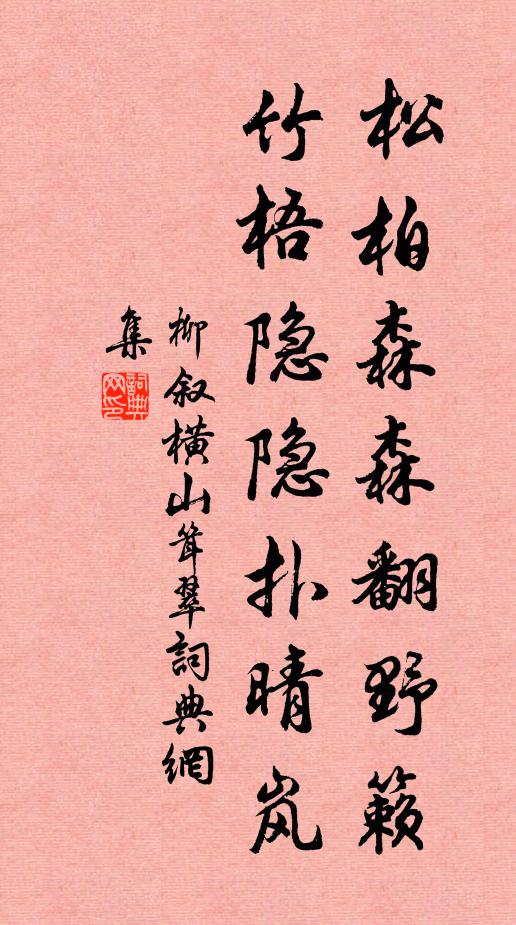 松柏森森翻野籁
竹梧隐隐扑晴岚
柳叙横山耸翠詞典網
集
詞典
网印